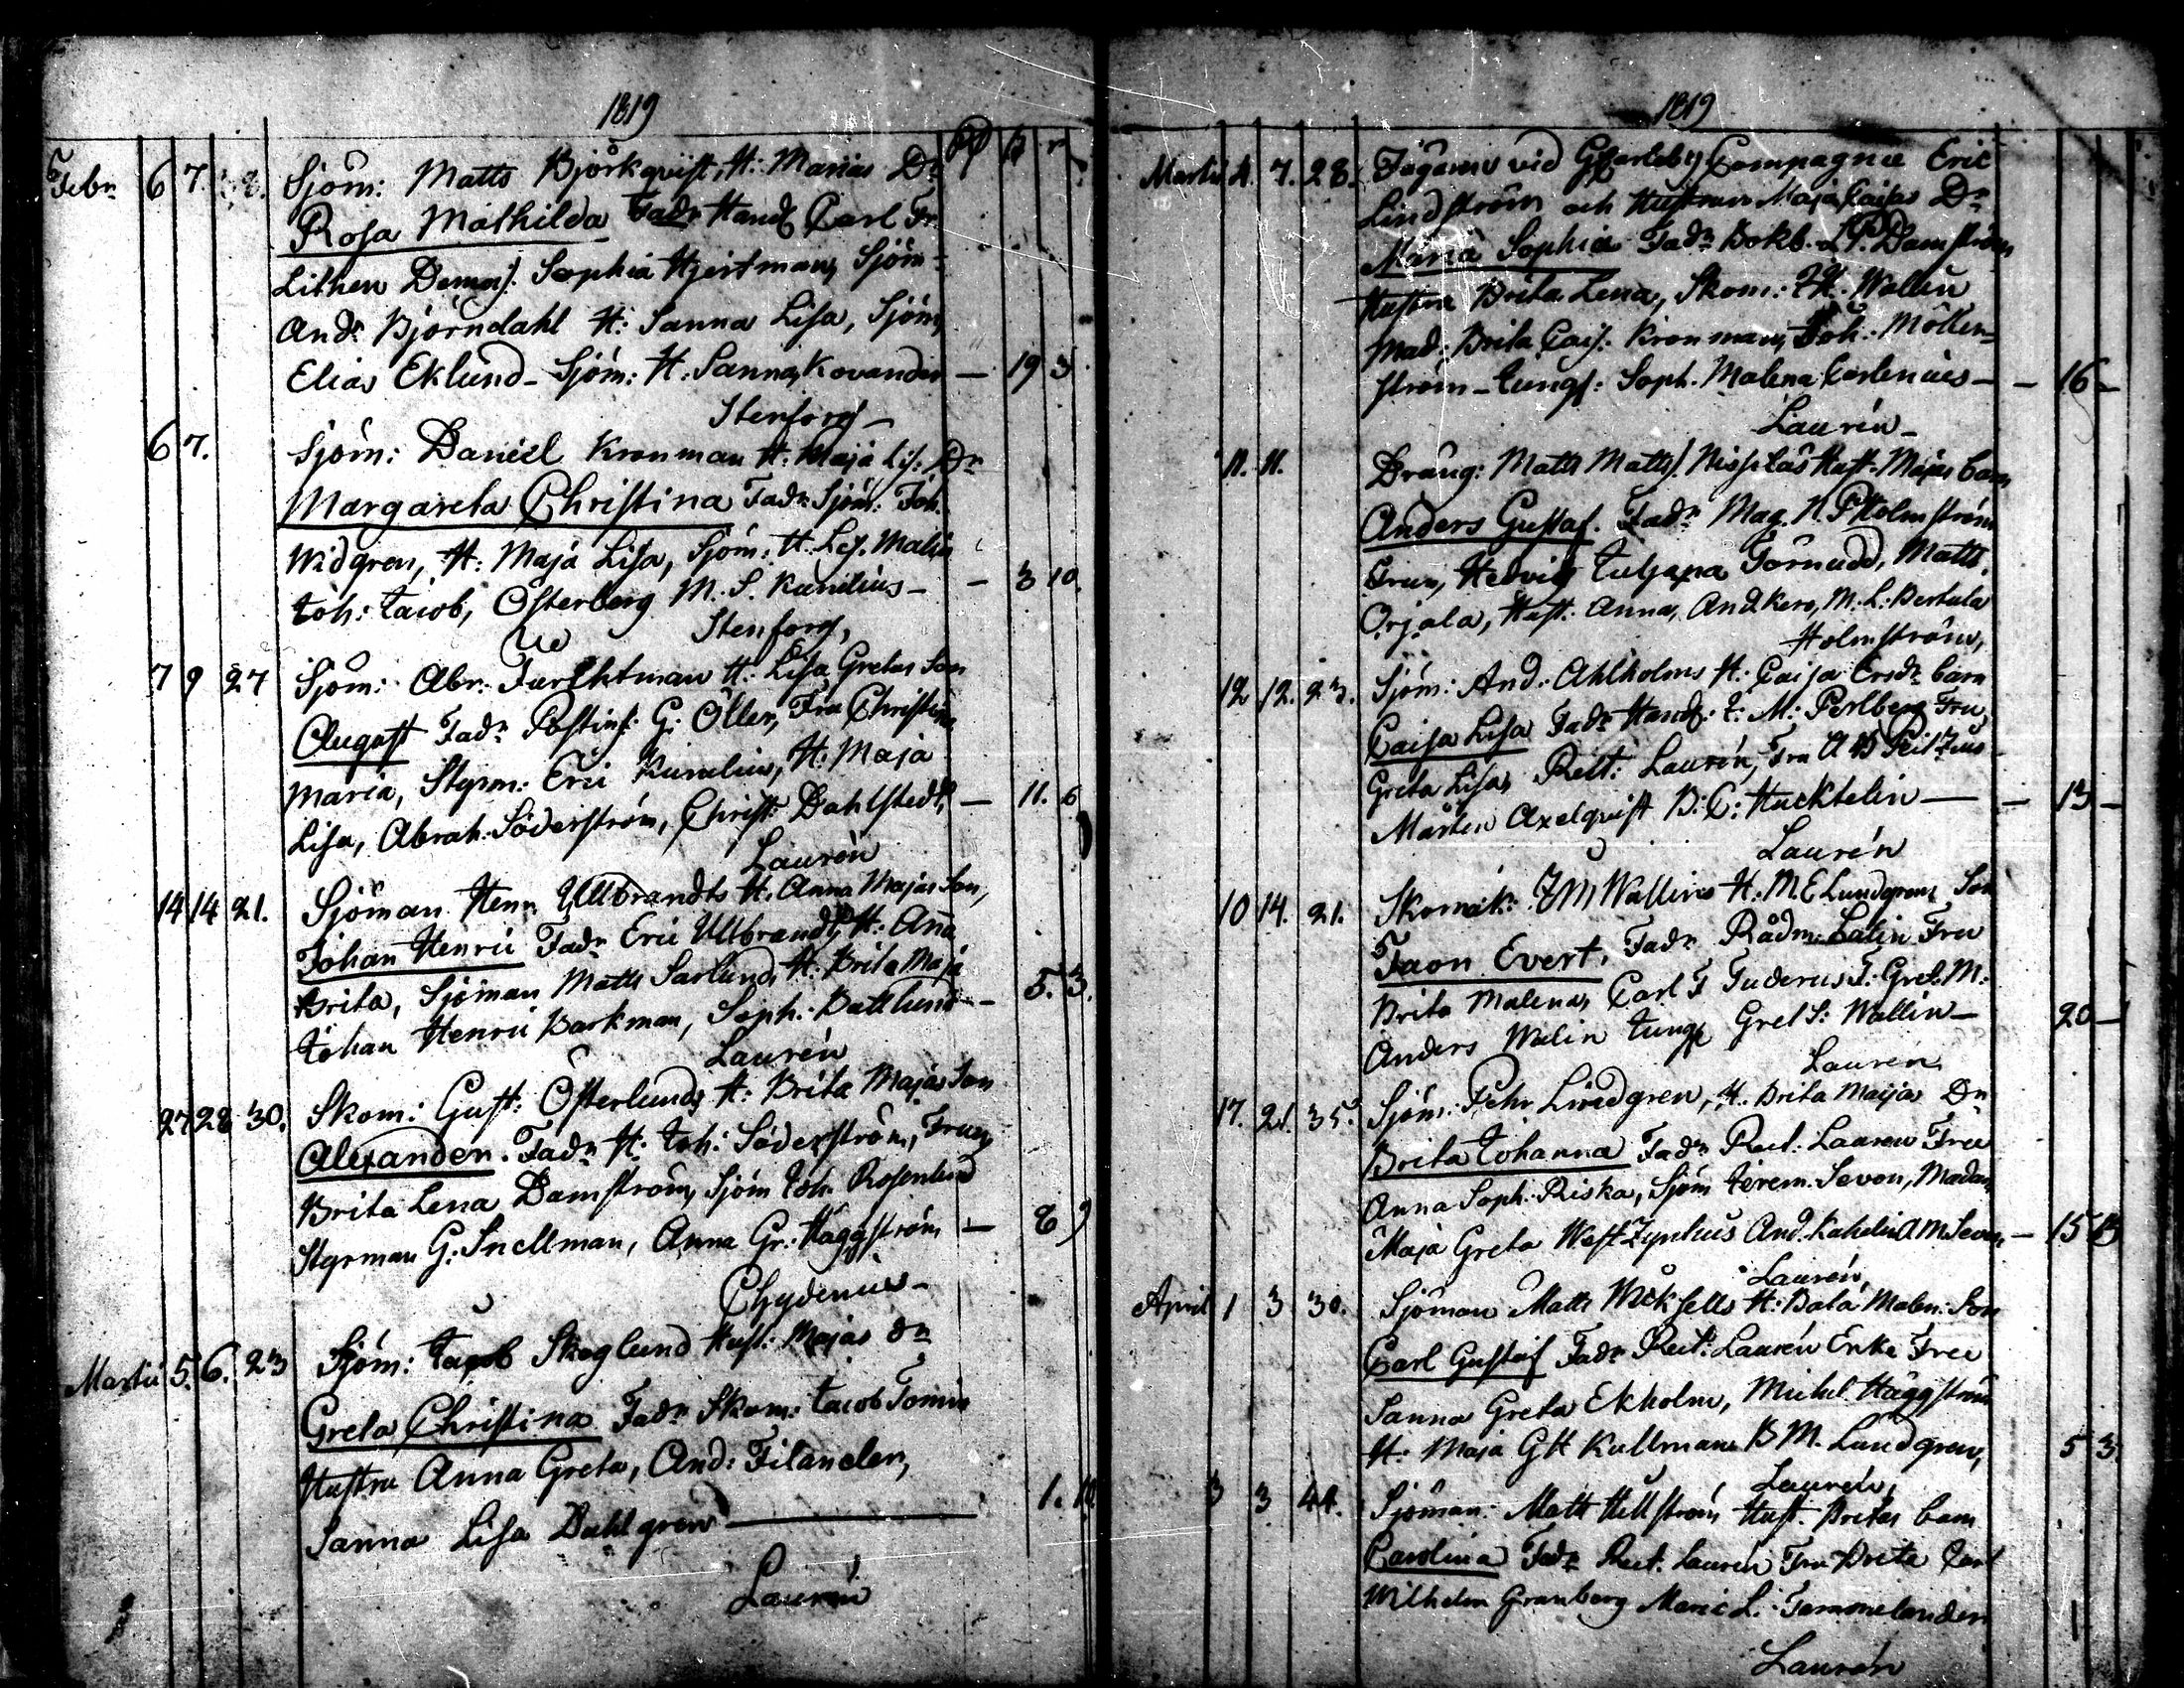 1819
Febr 6 7. 28. Sjöm: Matts Björkqvist, H: Marias Dr
Rosa Mathilda Fadr Handl Carl Fr
Lithen Demois: Sophia Hjertman, Sjöm:
Andr Björndahl H: Sanna Lisa, Sjöm,
Elias Eklund – Sjöm: H: Sanna Kovander — 19 3
Stenfors –
6 7. Sjöm: Daniel Kronman H: Maja Lis: Dr
Margareta Christina Fadr Sjöm: Joh.
Widgren, H: Maja Lisa, Sjöm: H. Malin
Joh: Jacob, Österberg M. S. Kunelius – — 3 10
Stenfors,
7 9 27 Sjöm: Abr: H: Lisa Gretas Son
August Fadr Postinsp: G: Öller, Fru Christina
Maria, Styrm: Eric Kunelius, H: Maja
Lisa, Abrah: Söderström, Christ: Dahlstedt, — 11. 6
Laurén
14 14 21. Sjöman Henr Ullbrandts H. Anna Majas Son,
Johan Henric Fadr Eric Ullbrandt, H: Anna
Brita, Sjöman Matts Sarlund, H: Brita Maja
Johan Henric Backman, Soph: – 5. 3.
Laurén
27 28 30. Skom: Gust: Österlunds H: Brita Majas Son
Alexander. Fadr H: Joh: Söderström, Frun
Brita Lena Damström, Sjöm Joh. Rosenlund
Styrman G. Snellman, Anna Gr: Häggström — 8 9
Chydenius –
Martii 5. 6. 23 Sjöm: Jacob Skoglund Hust: Majas dr
Greta Christina Fadr Skom: Jacob Tomin
Hustru Anna Greta, And: Filander,
Sanna Lisa Dahlgren — 1.
Laurén
1819
Martii 4. 7. 28. Jägaren vid GCarleby Compagnie Eric
Lindström och Hustrun Maja Caisas Dr
Maria Sophia Fadr Bokb. L P. Damström
Hustru Brita Lena, Skom: Wallin
Mad: Brita Cais: Kronman, Joh: Möllen-
ström – Jungf: Soph. Malena Carlenius — – 16 –
Laurén –
11. 11. Dräng: Matts Matts: Hust. Majas barn
Anders Gustaf. Fadr Mag. N. P Holmström
Frun, Hedvig Törnudd, Matts
Orjala, Hust: Anna, And Kero, M: L: Bertula
Holmström,
12 12. 23. Sjöm: And: Ahlholms H: Caisa Ersdr barn
Caisa Lisa Fadr Handl: J: M: Perlberg Fru
Greta Lisa, Rect: Laurén, Fru A
Mårten Axelqvist B: C: Hucktelin — – 13 –
Laurén
10 14. 21. Skomak: J M Wallins H: M. E Lundgrens Son
Evert, Fadr Rådm: Fru
Brita Malena, Carl F F: Gret: M:
Anders Walin Jungf Gret S: Wallin — 20 –
Laurén
17. 21. 35. Sjöm: Pehr Lindgren, H. Brita Maijas Dr
Brita Johanna Fadr Rect. Lauren Fru
Anna Soph: Riska, Sjöm Jerem. Sevon, Madam
Maja Greta WestZynthius And. Kahelin A M Sevon, — 15
Laurén,
April 1 3 30. Sjöman Matts H: Malen: Son
Carl Gustaf Fadr Rect: Laurén Enke Fru
Sanna Greta Ekholm, Michel Häggström
H: Maja G H Kullman B M. Lundgren, 5 3.
Laurén,
3 3 44. Sjöman Matts Hellström Hust. Britas barn
Carolina Fadr Rect. Laurén Fru Brita Carl
Wilhelm Granberg Maric L. Tammelander 1
Laurén